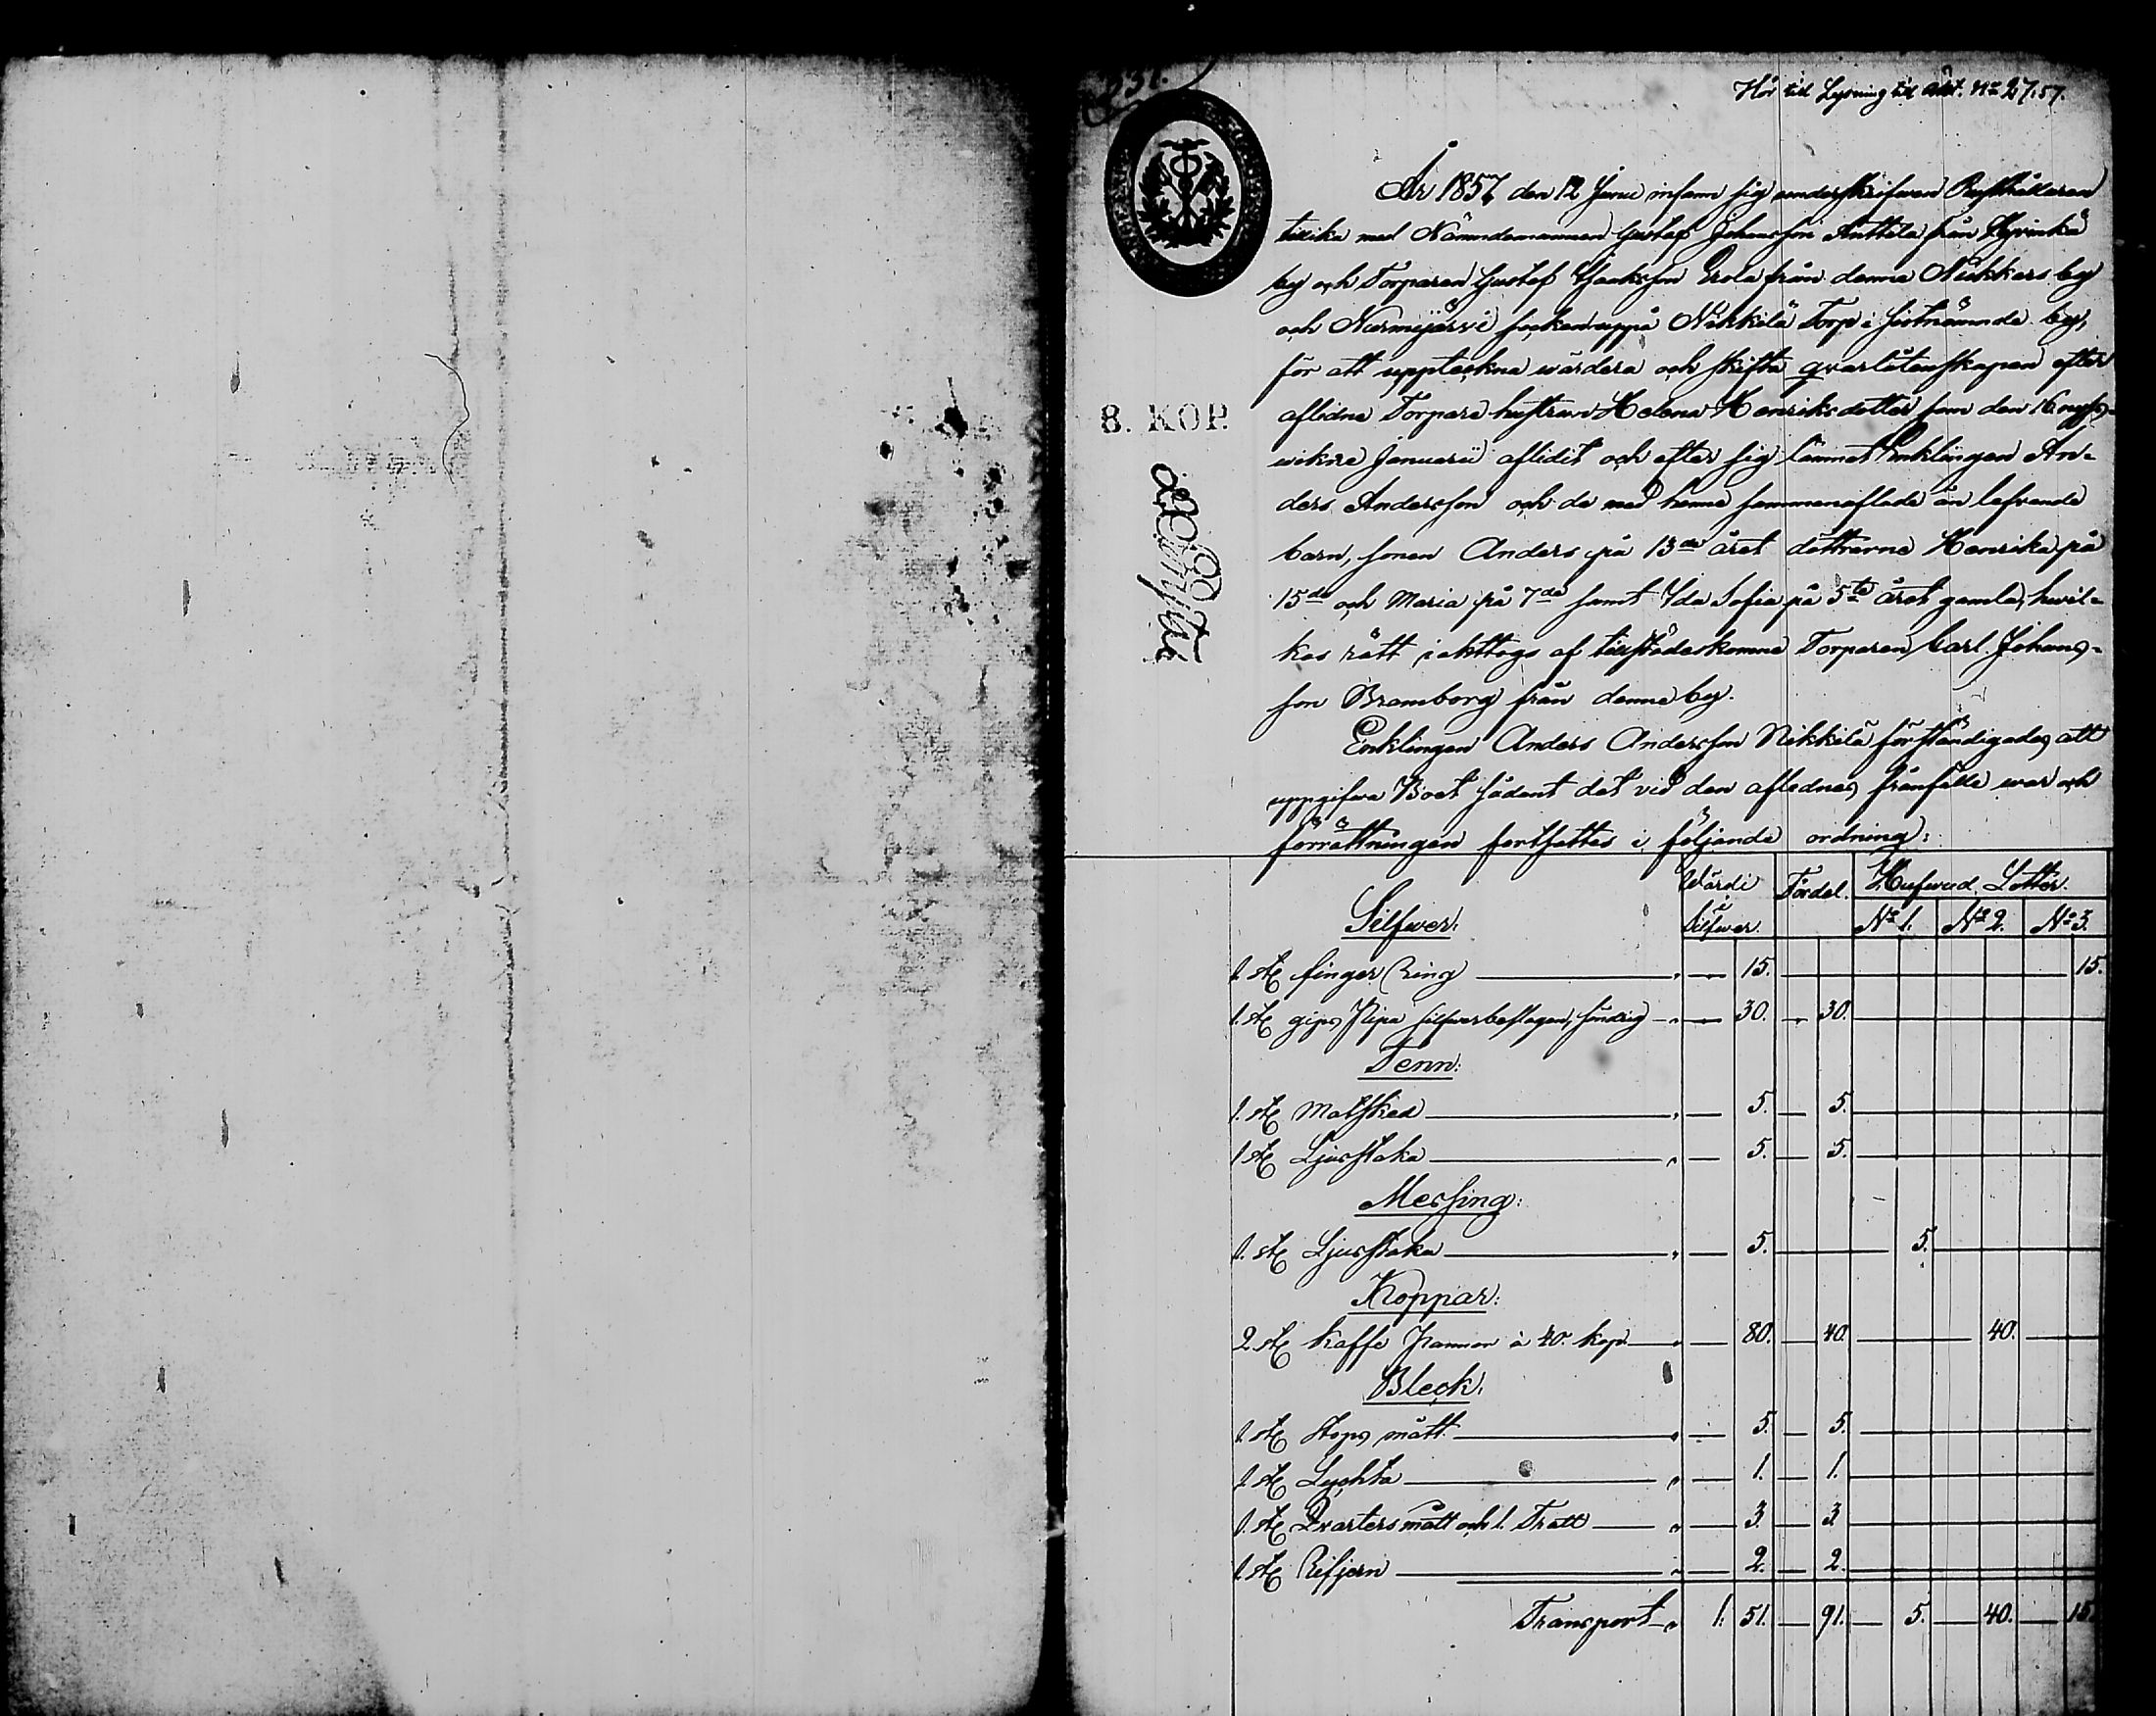 337.
Hör till Lysning till Akt. No 27.57.
År 1857 den 12 Junii infann sig underskrifwen Rusthållaren
tillika med Nämndemannen Gustaf Johansson Anttila från Hyvinkä
by och Torparen Gustaf Isaksson Erola från denna Nukkars by
och Nurmijärvi socken uppå Nikkilä Torp i sistnämnde by,
för att uppteckna wärdera och skifta qvarlåtenskapen efter
aflidne Torpare hustrun Helena Henriksdotter som den 16 nyss-
wikne Januarii aflidit och efter sig lämnat Enklingen An-
ders Andersson och de med henne sammanaflade än lefvande
barn, sonen Anders på 13de året döttrarne Henrika på
15de och Maria på 7de samt Ida Sofia på 5te året gamla, hwil-
kas rätt iakttogs af tillstädeskomne Torparen Carl Johans-
son Bramborg från denna by.
Enklingen Anders Andersson Nikkilä förständigades att
uppgifwa Boet sådant det vid den aflednas frånfälle war och
förrättningen fortsattes i följande ordning:
8. KOP.
Silfwer:
Wärdi i Silfwer.
Fördel.
Hufwud Lotter.
No 1. No 2. No 3.
1. st finger Ring " — 15. 15.
1. st gips Pipa silfwerbeslagen, söndrig " — 30. — 30.
Tenn:
1. st Matsked " — 5. — 5.
1 st Ljusstaka " — 5. — 5.
Messing:
1. st Ljusstaka " — 5. 5.
Koppar:
2 st kaffe pannor à 40. kop. " — 80. — 40. 40.
Bleck:
1. st Stops mått " — 5. — 5.
1. st Lychta " — 1. — 1.
1. st Qvarters mått och 1. Tratt " — 3. — 3.
1. st Rifjern " — 2. — 2.
Transport " 1. 51. — 91. — 5. — 40. — 15.